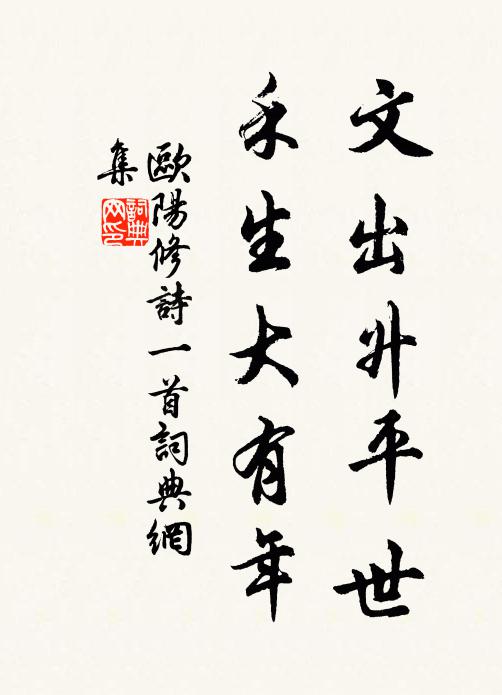 文出升平世
禾生大有年
歐陽修詩一首詞典網
集
詞典網印